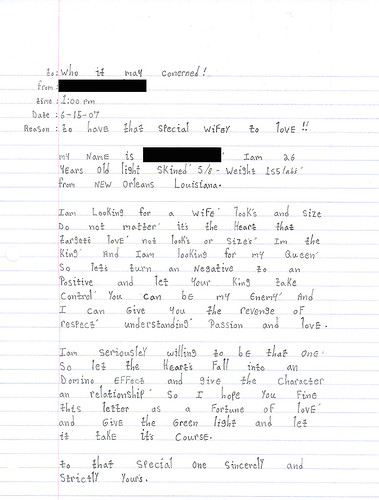 to: Who it may conerned!
from:
time: 1:00 pm
Date: 6-15-07
Reason: to have that special wifey to love!!
my Name is Iam 26
years old light skined 5/8 - Weight 155/lbs'
from New Orleans Louisiana.
Iam Looking for a wife' look's and size
Do not matter' it's the Heart that
targets love' not looks or size's' Im the
King' And Iam looking for my Queen'
So lets turn an Negative to an
Positive and let Your King take
Control' You can be my Enemy' And
I can Give You the revenge of
respect' understanding' Passion and love.
Iam Seriousley willing to be that one'
So let the Heart's Fall into an
Domino Effect and give the Character
an relationship' So I hope You Fine
this letter as a Fortune of love'
and Give the Green light and let
it take it's Course.
to that Special One Sincerely and
Strictly Your's.